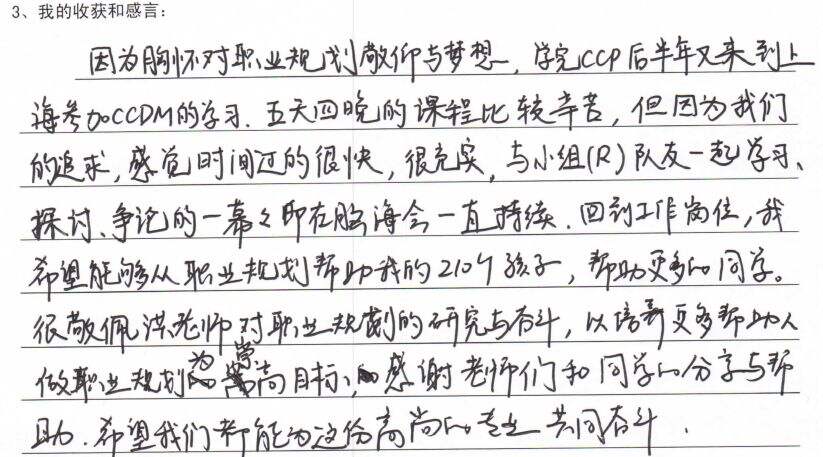 3、我的收获和感言：
因为胸怀对职业规划敬仰与梦想，学完CCP后半年又来到上
海参加CCDM的学习.五天四晚的课程比较辛苦，但因为我们
的追求，感觉时间过的很快，很充实，与小组(R)队友一起学习、
探讨、争论的一幕々印在脑海会一直持续.回到工作岗位，我
希望能够从职业规划帮助我的210个孩子，帮助更多的同学。
很敬佩洪老师对职业规划的研究与奋斗，以培养更多帮助人
做职业规划为崇高目标、感谢老师们和同学的分享与帮
助.希望我们都能为这份高尚的专业共同奋斗.